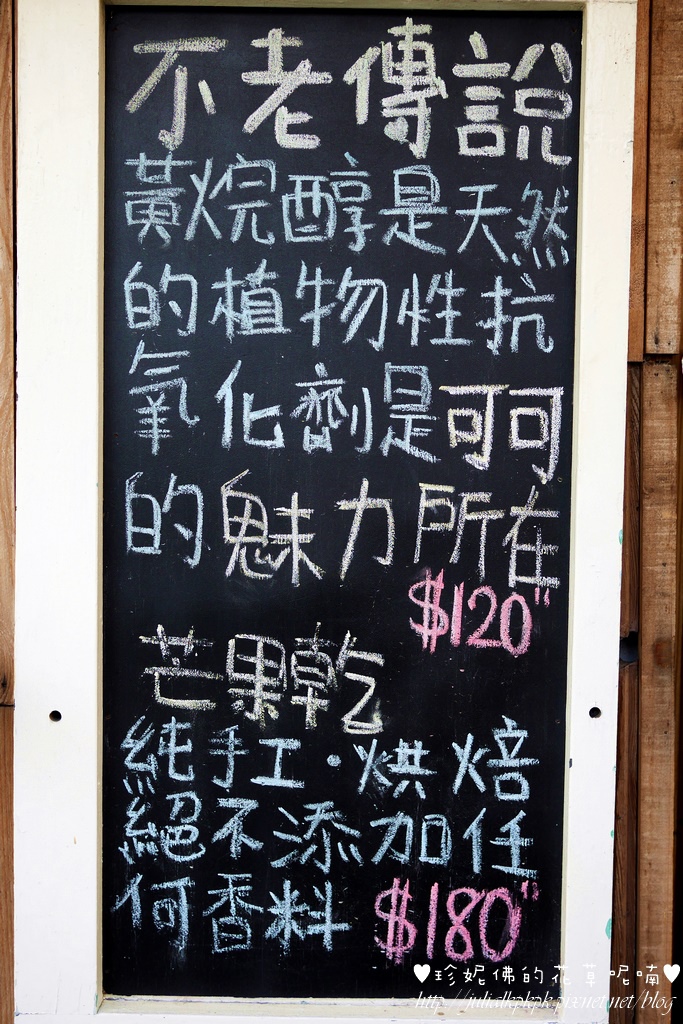 不老傳說
黃烷醇是天然
的植物性抗
氧化劑是可可
的魅力所在
$120"
芒果乾
純手工·烘焙
絕不添加任
何香料 $180"
♥珍妮佛的花草呢喃♥
http://julialkpkpk.pixnet.net/blog